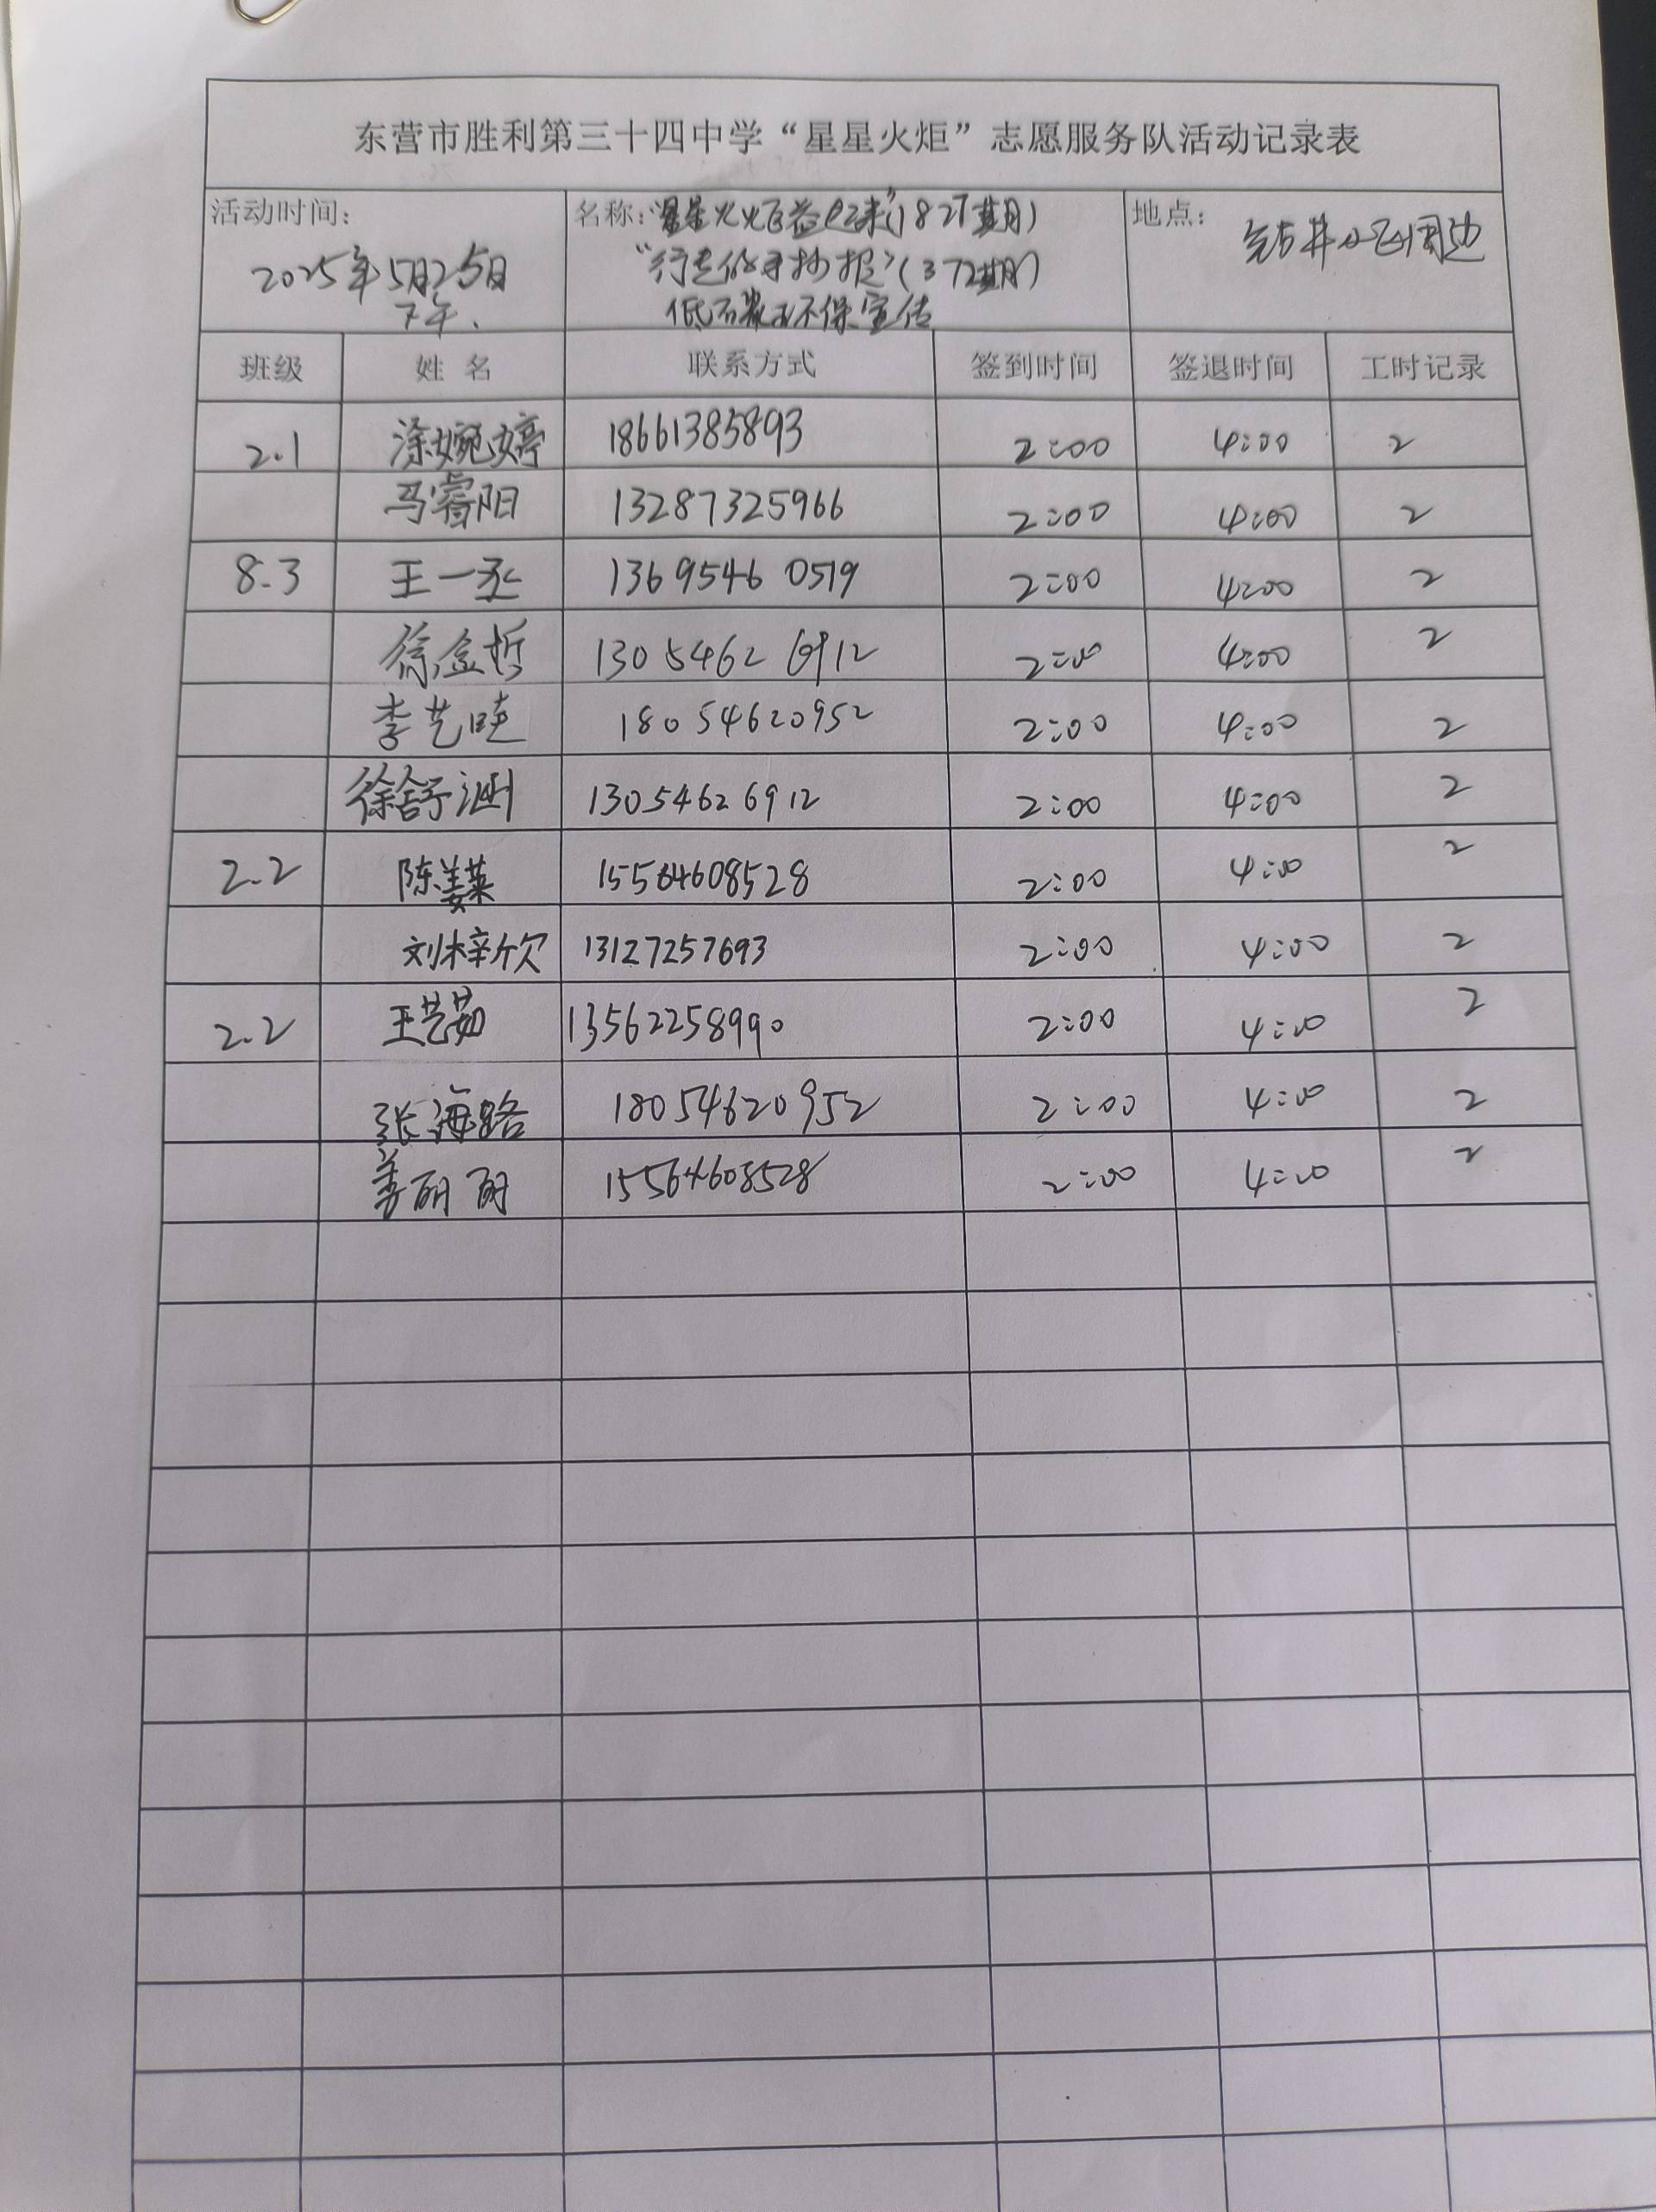 东营市胜利第三十四中学“星星火炬”志愿服务队活动记录表
活动时间: 2025年5月25日 下午.
名称:“星星火炬益起来”(1827期)
“行走的手抄报”(372期)
低碳环保宣传
地点: 钻井小区周边
班级 姓名 联系方式 签到时间 签退时间 工时记录
2.1 涂婉婷 18661385893 2:00 4:00 2
马睿阳 13287325966 2:00 4:00 2
8.3 王一丞 13695460519 2:00 4:00 2
徐金哲 13054626912 2:00 4:00 2
李艺 18054620952 2:00 4:00 2
徐舒涵 13054626912 2:00 4:00 2
2.2 陈姜莱 15564608528 2:00 4:00 2
刘梓欣 13127257693 2:00 4:00 2
2.2 王艺茹 13562258990 2:00 4:00 2
张海路 18054620952 2:00 4:00 2
姜丽丽 15564608528 2:00 4:00 2